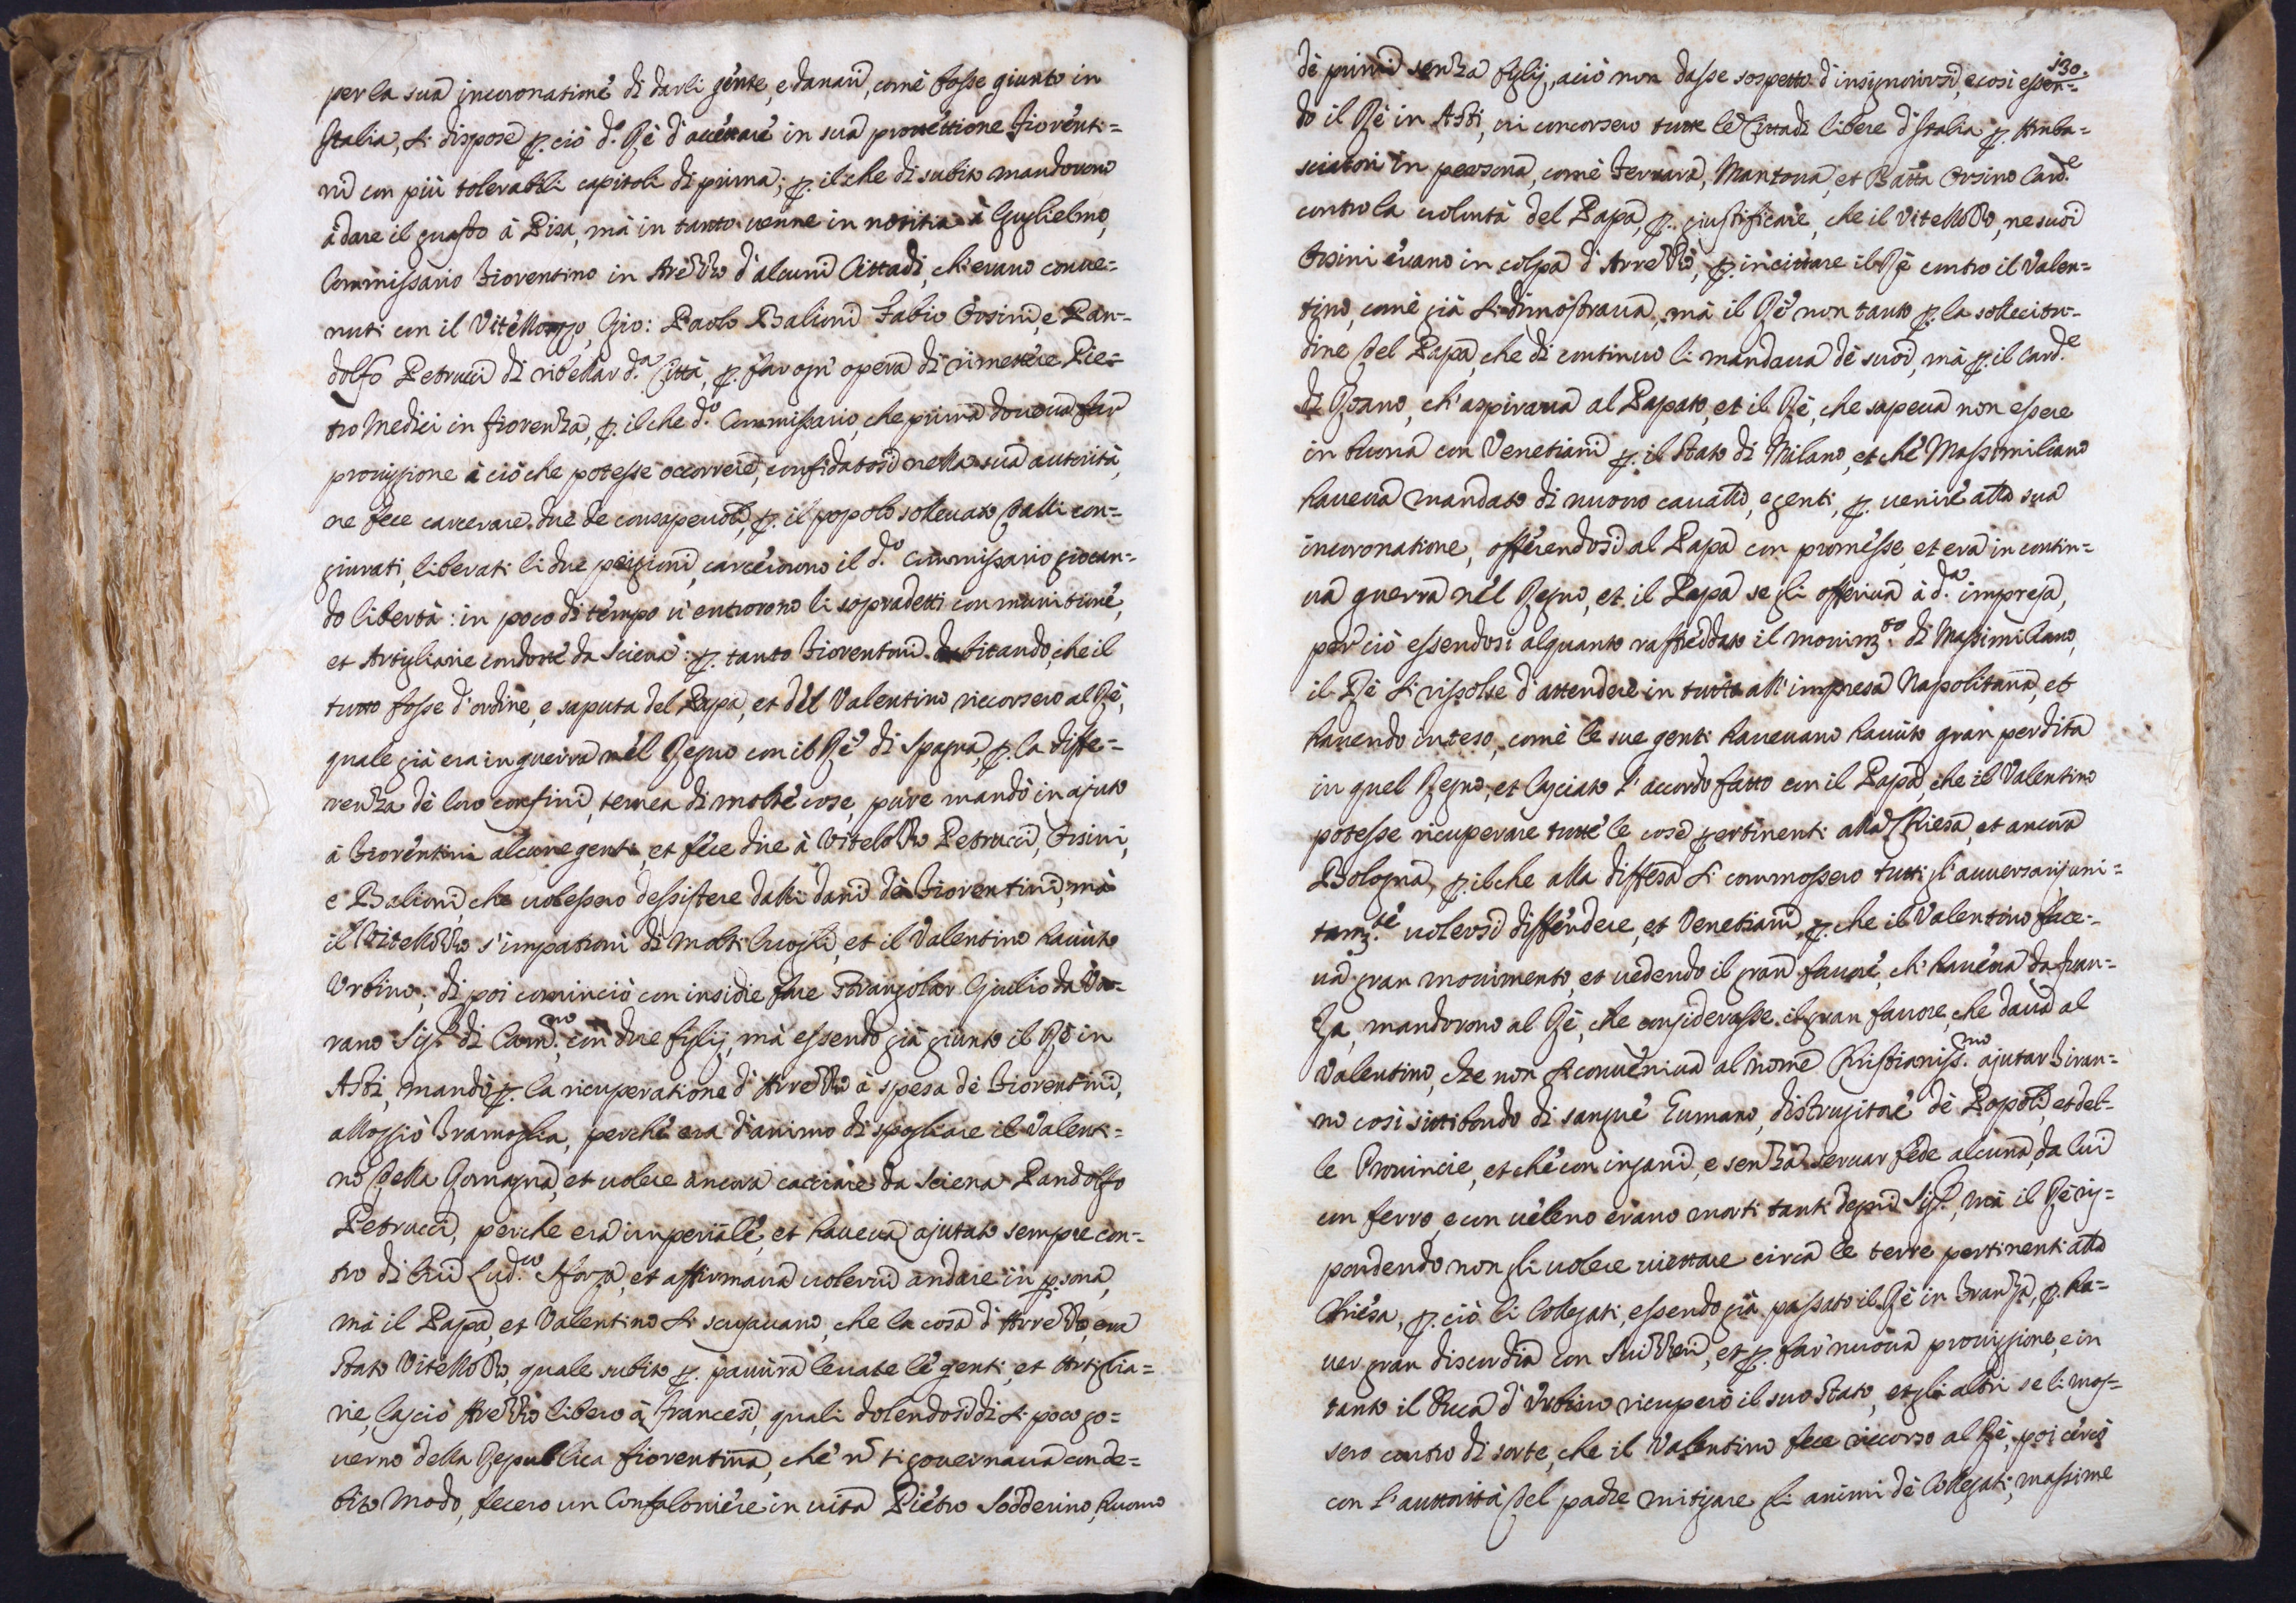 per la sua incoronatione di darli gente, e danari, come fosse giunto in
Italia, si dispose p. ciò d.º Rè d'accettare in sua protettione Fiorenti=
ni con più tolerabili capitoli di prima; p. il che di subito mandorono
à dare il guasto à Pisa, mà in tanto venne in notitia à Guglielmo,
Commissario Fiorentino in Arezzo d'alcuni Cittadi, ch'erano conve=
nuti con il Vitellozzo, Gio: Paolo Balioni Fabio Orsini, e Pan=
dolfo Petrucci di ribellar d.ª Città, p. far ogn'opera di rimettere Pie=
tro Medici in fiorenza, p. il che d.º Commissario, che prima doveva far
provisione à ciò che potesse occorrere, confidatosi nella sua autorità,
ne fece carcerare due de consapevoli, p. il popolo sollevato dalli con=
giurati, liberati li due prigioni, carcerorno il d.º Commissario giocan=
do libertà: in poco di tempo v'entrorono li sopradetti con munitione,
et Artigliarie condotte da Sciena: p. tanto Fiorentini dubitando, che il
tutto fosse d'ordine, e saputa del Papa, et del Valentino riccorsero al Rè,
quale già era in guerra nel Regno con il Rè di Spagna, p. la diffe=
renza de loro confini, temea di molte cose, pure mandò in ajuto
à Fiorentini alcune genti, et fece dire à Vitelozzo Petrucci, Orsini,
e Balioni, che volessero dessistere dalli dani dè Fiorentini, mà
il Vitellozzo s'impatronì di molti luoghi, et il Valentino havuto
Urbino, di poi cominciò con insidie fare strangolar Giulio da Va=
rano Sig.r di Cam.no, con due figlij, mà essendo già giunto il Rè in
Asti, mandò p. la ricuperatione d'Arrezzo à spesa dè Fiorentini,
alloggiò Tramoglia, perchè era d'animo di spogliare il Valenti=
no della Romagna, et volere ancora cacciare da Sciena Pandolfo
Petrucci, perche era imperiale, et haveva ajutato sempre con=
tro di lui Lud.co Sforza, et affirmava volervi andare in p.sona,
mà il Papa, et Valentino si scusavano, che la cosa d'Arrezzo, era
stato Vitellozzo, quale subito p. paura levate le genti, et Artiglia=
rie, lasciò Arezzo libero à francesi, quali dolendosi di si poco go=
verno della Republica fiorentina, che nō si governava con de=
bito modo, fecero un Confaloniere in vita Pietro Sodderino, huomo
130.
dè primi senza figlij, aciò non dasse sospetto d'insignorirsi, e così essen=
do il Rè in Asti, vi concorsero tutte le Cittadi libere d'Italia p. Amba=
sciatori in persona, come Ferrara, Mantova, et Batta Orsino Card.e
contro la volontà del Papa, p. giustificare, che il Vitellozzo, ne suoi
Orsini erano in colpa d'Arrezzo, p. incittare il Rè contro il Valen=
tino, come già si dimostrava, mà il Rè non tanto p. la sollecitu=
dine del Papa, che di continuo li mandava dè suoi, mà p. il Card.e
di Roano, ch'aspirava al Papato, et il Rè, che sapeva non essere
in buona con Venetiani p. il stato di Milano, et che Massimiliano
haveva mandato di nuovo cavalli, e genti, p. venire alla sua
incoronatione, offerendosi al Papa con promesse, et era in contin=
ua guerra nel Regno, et il Papa segli offeriva à d.ª impresa,
per ciò essendosi alquanto raffreddato il movim.to di Massimiliano,
il Rè si rissolse d'attendere in tutto all'impresa Napolitana, et
havendo inteso, come le sue genti havevano havuto gran perdita
in quel Regno, et lasciato l'accordo fatto con il Papa che il Valentino
potesse ricuperare tutte le cose pertinenti alla Chiesa, et ancora
Bologna, p. il che alla diffesa si commossero tutti gl'avversarij uni=
tam.te volersi diffendere, et Venetiani, p. che il Valentino face=
va gran movimento, et vedendo il gran favore, ch'haveva da fran=
za, mandorono al Rè, che considerasse il gran favore, che dava al
Valentino, che non si conveniva al nome Khristianiss.mo ajutar Tiran=
no così sitibondo di sangue Eumano, distrugitore dè Popoli, et del=
le Provincie, et che con ingani, e senza servar fede alcuna, da lui
con ferro, e con veleno erano morti tanti degni Sig.ri, mà il Rè ris=
pondendo non gli volere viettare circa le terre pertinenti alla
Chiesa, p. ciò li Collegati, essendo già passato il Rè in Franza, p. ha=
ver gran discordia con Suizzeri, et p. far nuova provisione, e in
tanto il Duca d'Urbino ricuperò il suo stato, et gli altri se li mos=
sero contro di sorte, che il Valentino fece riccorso al Rè, poi cercò
con l'auttorità del padre mitigare gli animi dè Collegati, massime